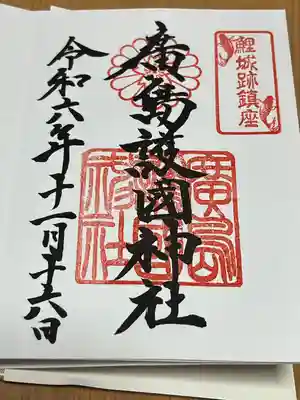 鯉城跡鎮座
廣島護國神社
令和六年十一月十六日
廣島
護國
神社